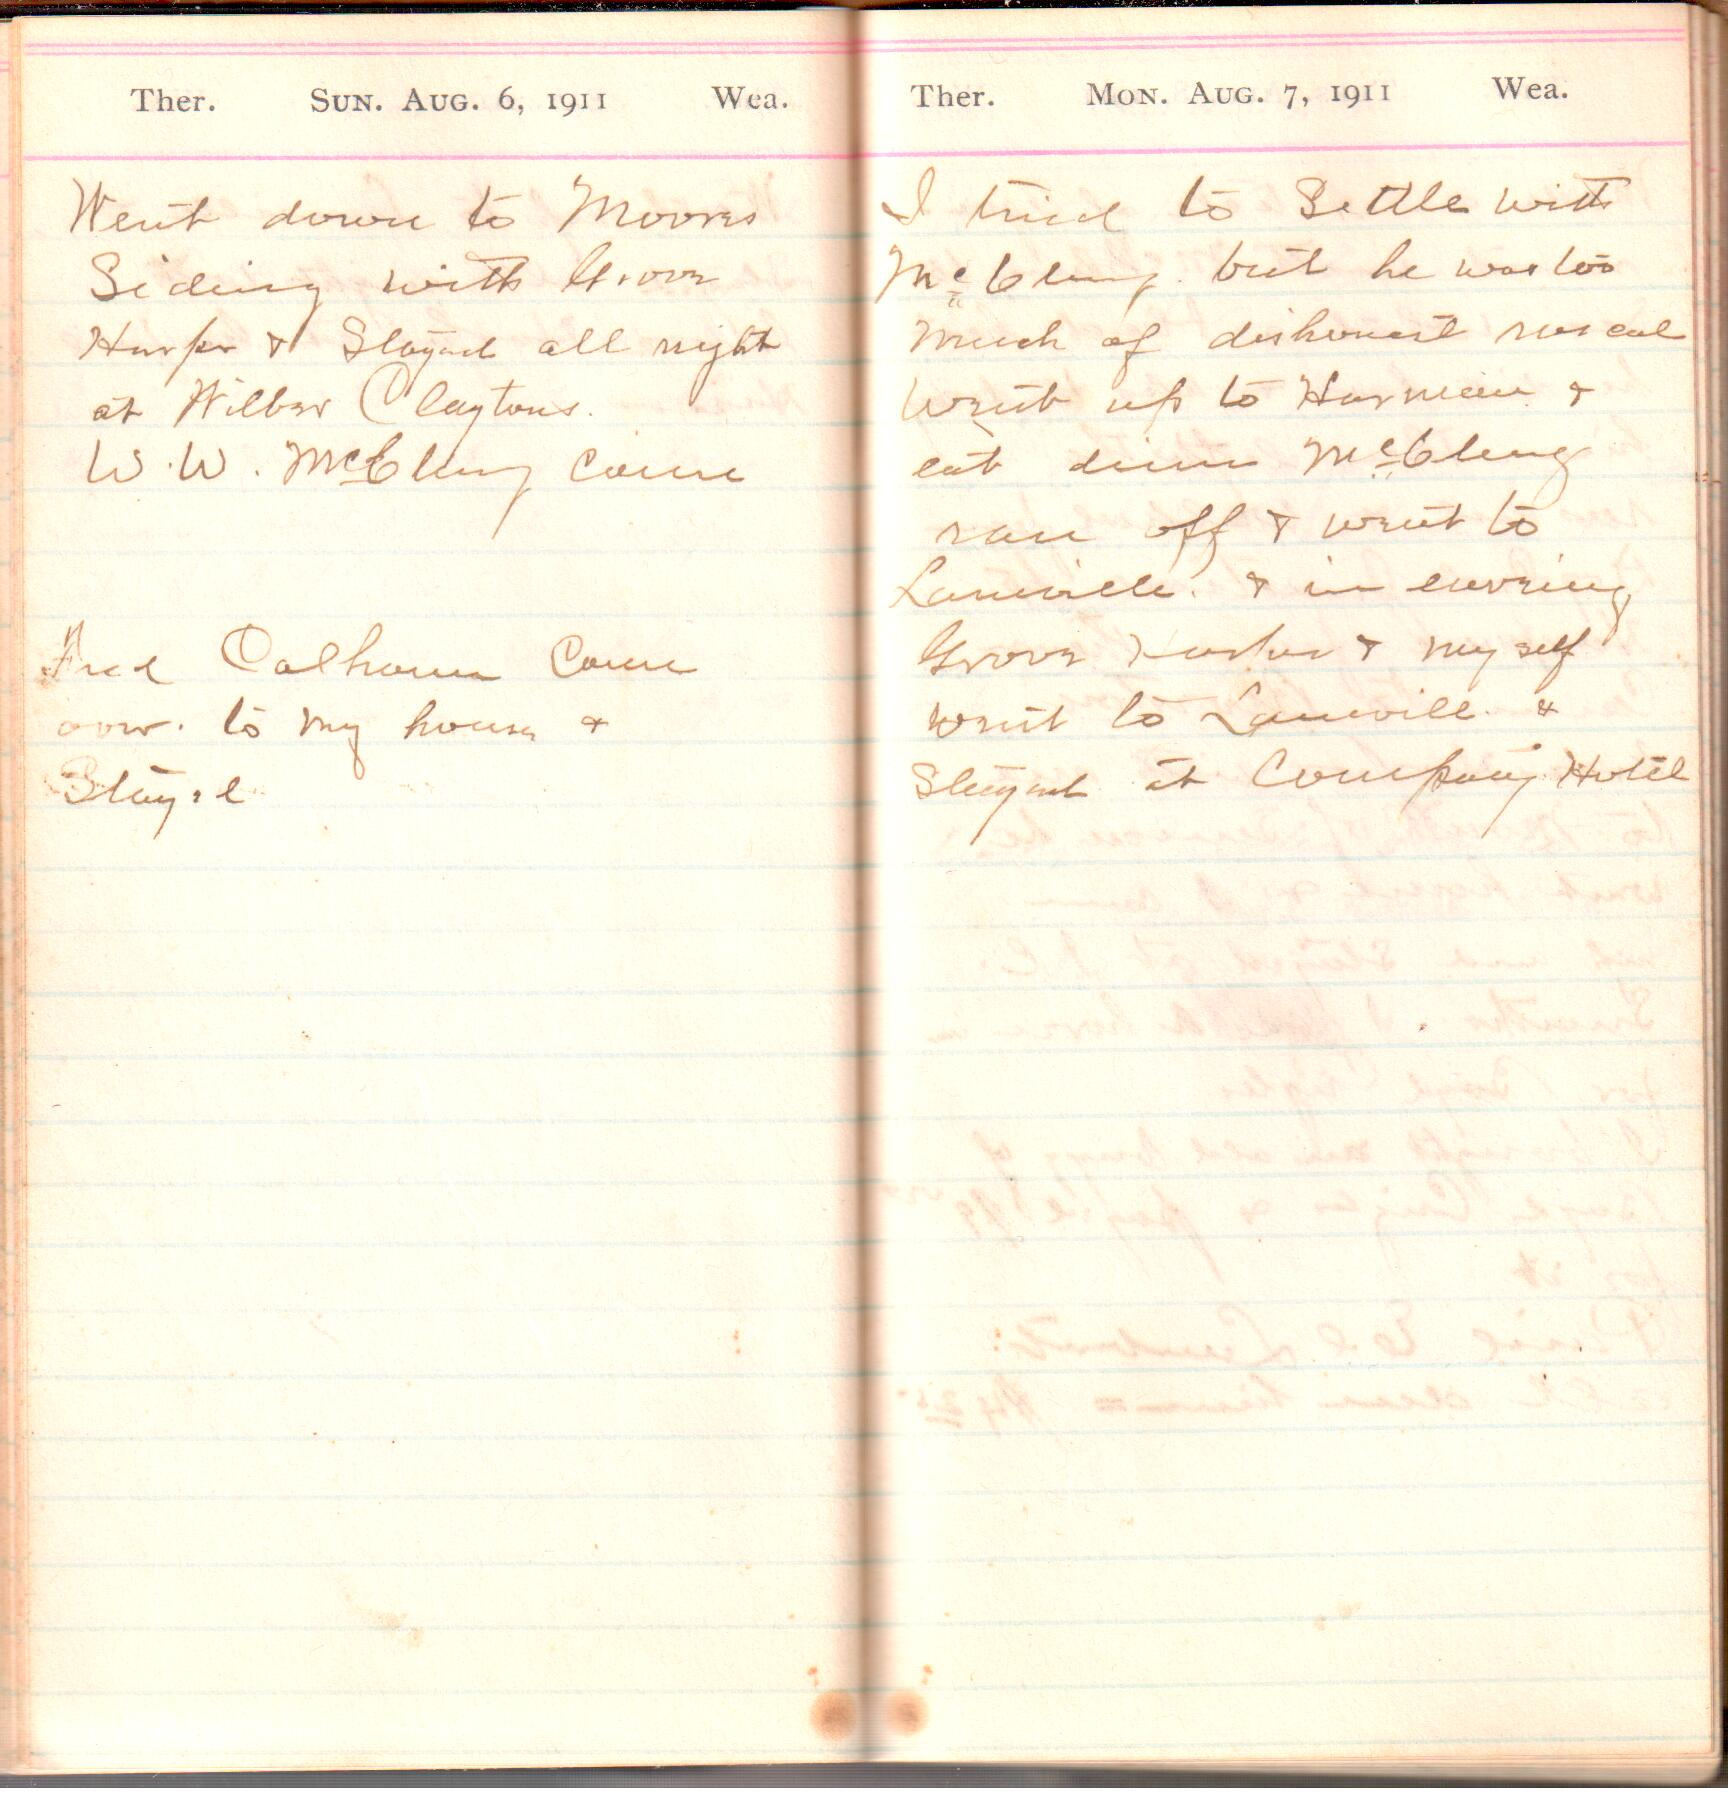 Ther. Sun. Aug. 6, 1911 Wea.
Went down to Moores
Siding with Grover
Harper & Stayed all night
at Wilber Claytons.
W. W. McClung Came
Fred Calhoun Came
over. to my house &
Stayed
Ther. Mon. Aug. 7, 1911 Wea.
I tried to Settle with
McClung. but he was too
much of dishonest rascal
Went up to Harman &
eat diner McClung
ran off & went to
Laneville. & in evening
Grover Harper & my self
went to Laneville. &
Stayed at Company Hotel